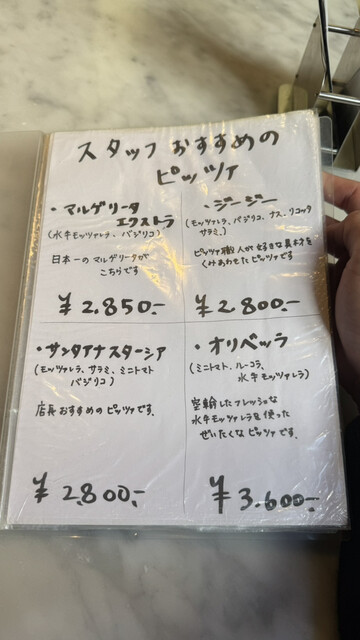 スタッフおすすめの
ピッツァ
・マルゲリータ
エクストラ
(水牛モッツァレラ、バジリコ)
日本一のマルゲリータが
こちらです
¥2,850.-
・ジージー
(モッツァレラ、バジリコ、ナス、リコッタ
サラミ、)
ピッツァ職人が好きな具材を
くみあわせたピッツァです
¥2,800.-
・サンタアナスターシア
(モッツァレラ、サラミ、ミニトマト
バジリコ)
店長おすすめのピッツァです.
¥2,800.-
・オリベッラ
(ミニトマト、ルーコラ、
水牛モッツァレラ)
空輸したフレッシュな
水牛モッツァレラを使った
ぜいたくなピッツァです.
¥3,600.-